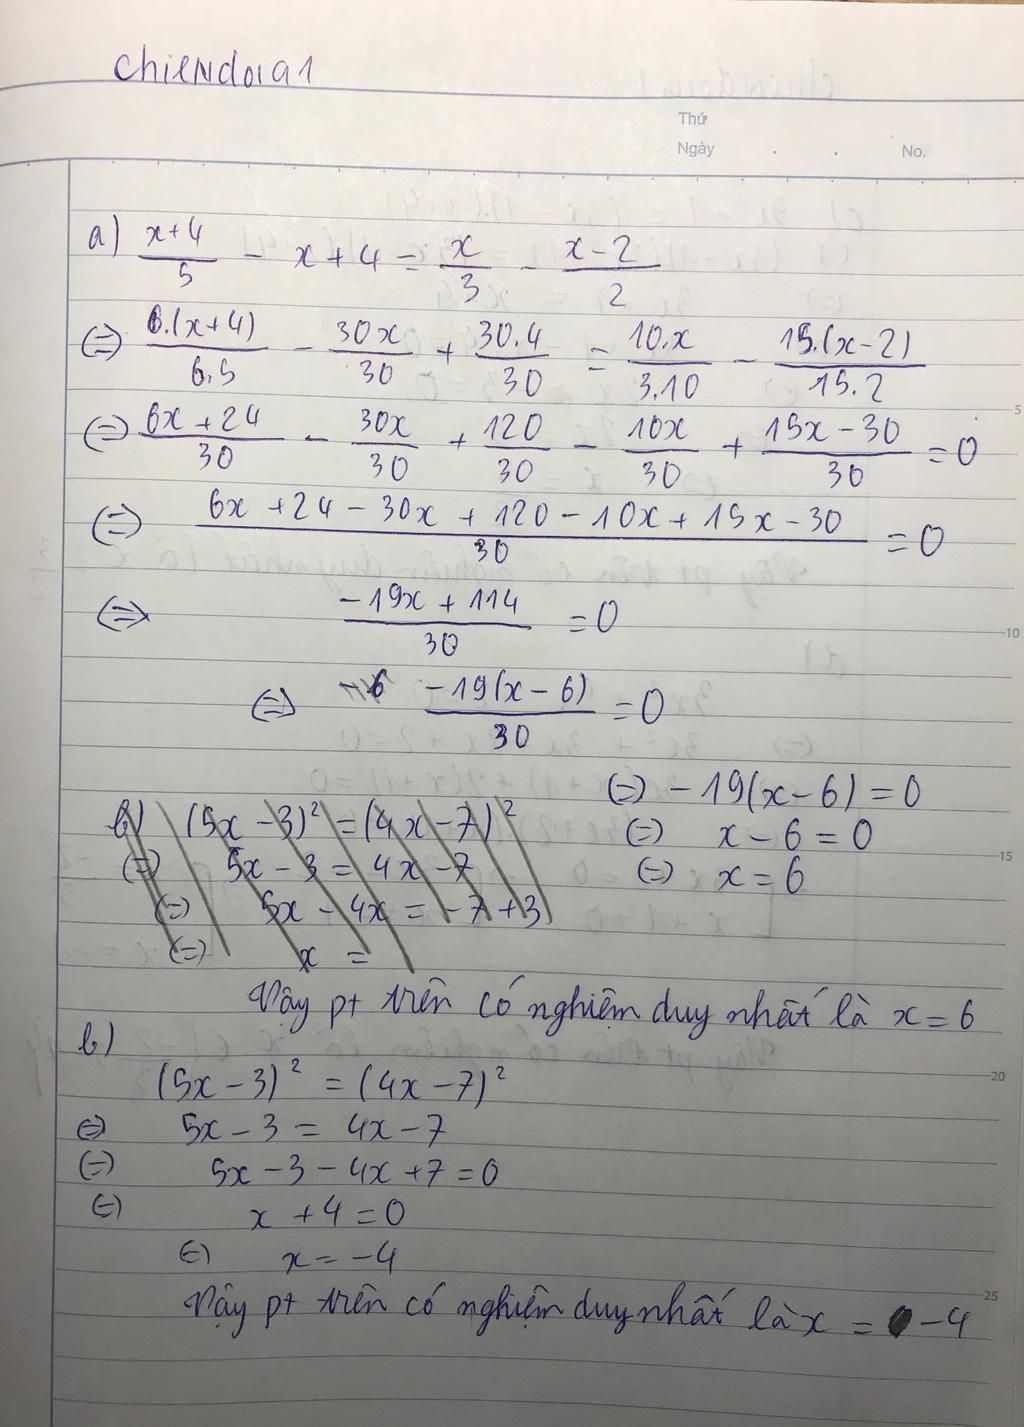 chiENdoia1
Thứ
Ngày . . No.
a) \frac{x+4}{5} - x + 4 = \frac{x}{3} - \frac{x-2}{2}
(=) \frac{6.(x+4)}{6.5} - \frac{30x}{30} + \frac{30.4}{30} = \frac{10.x}{3.10} - \frac{15.(x-2)}{15.2}
5
(=) \frac{6x+24}{30} - \frac{30x}{30} + \frac{120}{30} - \frac{10x}{30} + \frac{15x-30}{30} = 0
(=) \frac{6x+24-30x+120-10x+15x-30}{30} = 0
(=) \frac{-19x+114}{30} = 0
10
(=) -6 \frac{-19(x-6)}{30} = 0
(=) -19(x-6) = 0
b) (5x-3)² = (4x-7)² (=) x-6 = 0
15
(=) 5x-3 = 4x-7 (=) x = 6
(=) 5x-4x = -7+3
(=) x =
Vậy pt trên có nghiệm duy nhất là x = 6
b)
20
(5x-3)² = (4x-7)²
(=) 5x-3 = 4x-7
(=) 5x-3-4x+7 = 0
(=) x+4 = 0
(=) x = -4
25
Vậy pt trên có nghiệm duy nhất là x = -4